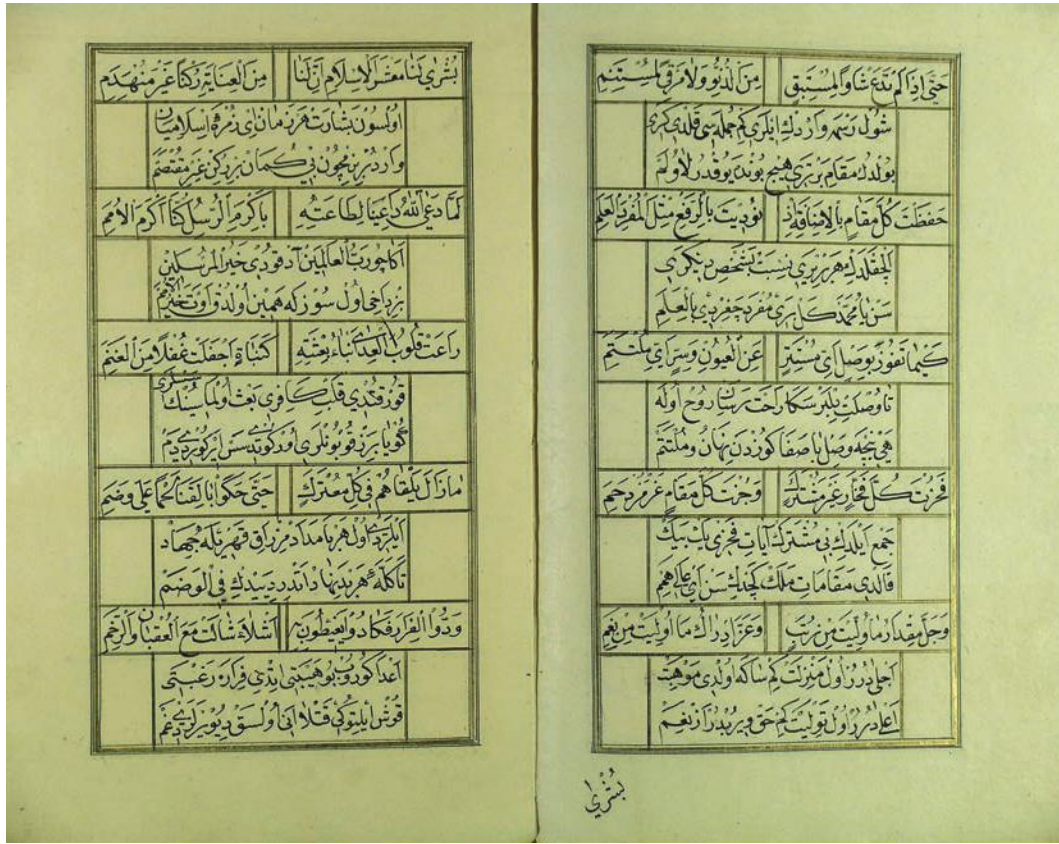 حَتّٰى اِذَا لَمْ تَدَعْ شَاْوًا لِمُسْتَبِقٍ مِنَ الدُّنُوِّ وَلَا مَرْقًى لِمُسْتَنِمِ
شول رسمه واردك ايلرى كم جمله سى قلدى كرى
بولدك مقام برترى هيچ بونده يوقدر لا ولم
حفظت كل مقام بالاضافة اذ نوديت بالرفع مثل المفرد العلم
الچقلدك هر بر يرى نسبت بشخص ديكرى
سن يا محمد كل برى مفرد چغردى بالعلم
كيما تفوز بوصل اى مستتر عن العيون وسر اى مكتتم
تا وصلت سكا راحت رسان روح اوله
هى نيجه وصل با صفا كوزدن نهان وملتتم
فحزت كل فخار غير مشترك وجزت كل مقام غير مزدحم
جمع ايلدك بى مشترك آيات فخرى يك بيك
قالدى مقامات ملك كچدك سن اى عالى همم
وجل مقدار ما وليت من رتب وعز ادراك ما اوليت من نعم
اجلى درر اول منزلت كم ساكه اولدى موهبت
اعلا درر اول توليت كم حق ويربدر از نعم
بشرى
بشرى لنا معشر الاسلام ان لنا من العناية ركنا غير منهدم
اولسون بشارت هر زمان اى زمره اسلاميان
واردر بزمچون بى كمان بر ركن غير منقصم
لما دعى الله داعينا لطاعته باكرم الرسل كنا اكرم الامم
اكا چو رب العالمين آد قودى خير المرسلين
بز داخى اول سوزكه همين اولدق اوت خير امم
راعت قلوب العدى انباء بعثته كنباة اجفلت غفلا من الغنم
قورقدى قلب كافرى بعث اولماسينك
كويا برر قويونلرى اوركوتدى سس
مازال يلقاهم فى كل معترك حتى حكوا بالقنا لحما على وضم
ايلردى اول هر بامداد مزراق قهريله جهاد
فى الوضم
ودوا الفرار فكادوا يغبطون به اشلاء شالت مع العقبان والرخم
اعدا كوروب بو هيبتى ايتدى فراره رغبتى
قوش ايليتوكى قتلا انى اولسق ديو يرلردى غم